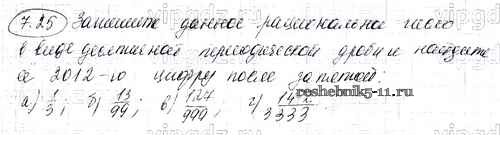 7.25 Запишите данное рациональное число
в виде десятичной периодической дроби и найдите
её 2012-ю цифру после запятой:
а) 1/3; б) 13/99; в) 127/999; г) 3 142/3333.
reshebnik5-11.ru